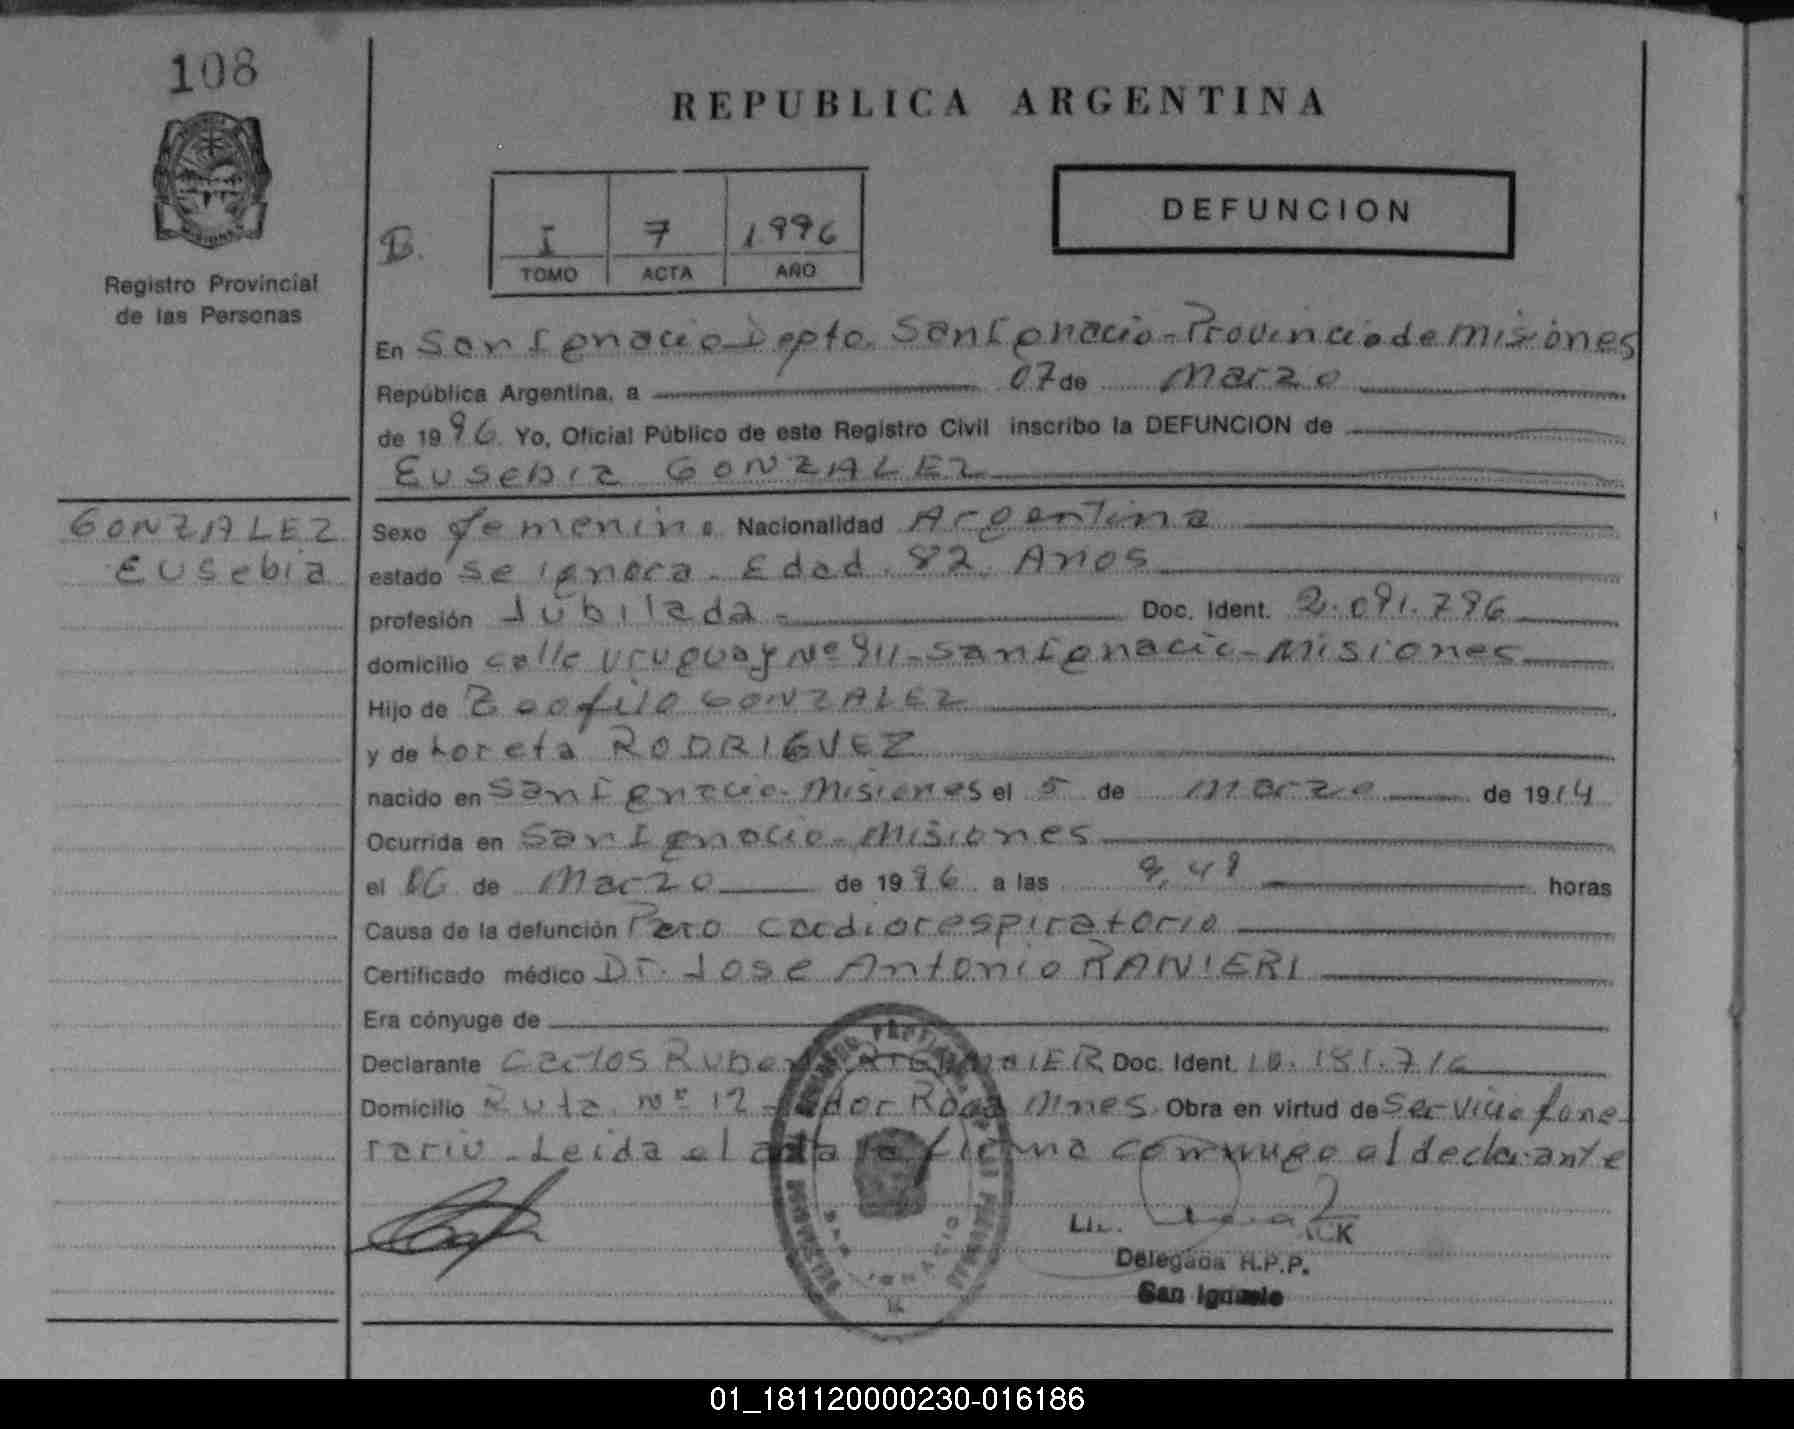 108
REPUBLICA ARGENTINA
DEFUNCION
B.
I 7 1996
TOMO ACTA AÑO
Registro Provincial
de las Personas
En San Ignacio Depto. San Ignacio - Provincia de Misiones
República Argentina, a 07 de Marzo
de 1996. Yo, Oficial Público de este Registro Civil inscribo la DEFUNCION de
Eusebia GONZALEZ
GONZALEZ
Eusebia
Sexo femenino Nacionalidad Argentina
estado se ignora. Edad. 82. Años
profesión Jubilada - Doc. Ident. 2.091.796
domicilio calle Uruguay Nº 911 - San Ignacio - Misiones
Hijo de Teofilo GONZALEZ
y de Loreta RODRIGUEZ
nacido en San Ignacio - Misiones el 5 de Marzo de 1914
Ocurrida en San Ignacio - Misiones
el 06 de Marzo de 1996 a las horas
Causa de la defunción Paro cardiorespiratorio
Certificado médico Dr. Jose Antonio RANIERI
Era cónyuge de
Declarante Carlos Ruben Doc. Ident. 10.181.716
Domicilio Ruta Nº 12 - Roca Mnes. Obra en virtud de Servicio fune-
rario - Leida el acta la firma conmigo el declarante
Lic.
Delegada R.P.P.
San Ignacio
01_181120000230-016186